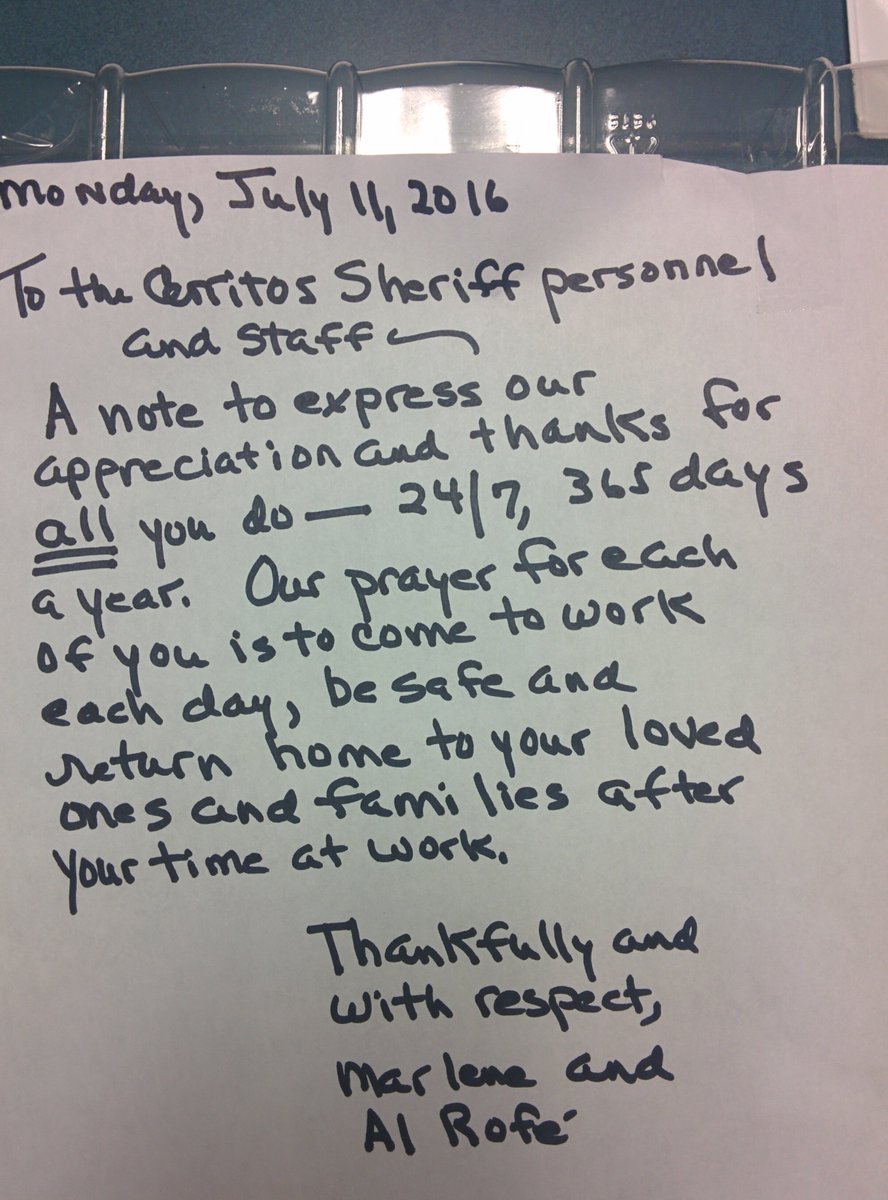 Monday, July 11, 2016
To the Cerritos Sheriff personnel
and staff
A note to express our
appreciation and thanks for
all you do — 24/7, 365 days
a year. Our prayer for each
of you is to come to work
each day, be safe and
return home to your loved
ones and families after
your time at work.
Thankfully and
with respect,
Marlene and
Al Rofé